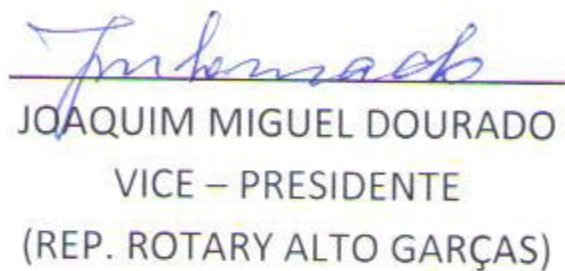 JOAQUIM MIGUEL DOURADO
VICE – PRESIDENTE
(REP. ROTARY ALTO GARÇAS)